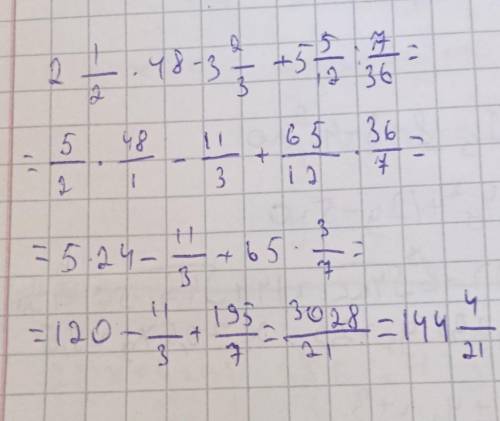 2 1/2 · 48 - 3 2/3 + 5 5/12 : 7/36 =
= 5/2 · 48/1 - 11/3 + 65/12 · 36/7 =
= 5·24 - 11/3 + 65 · 3/7 =
= 120 - 11/3 + 195/7 = 3028/21 = 144 4/21